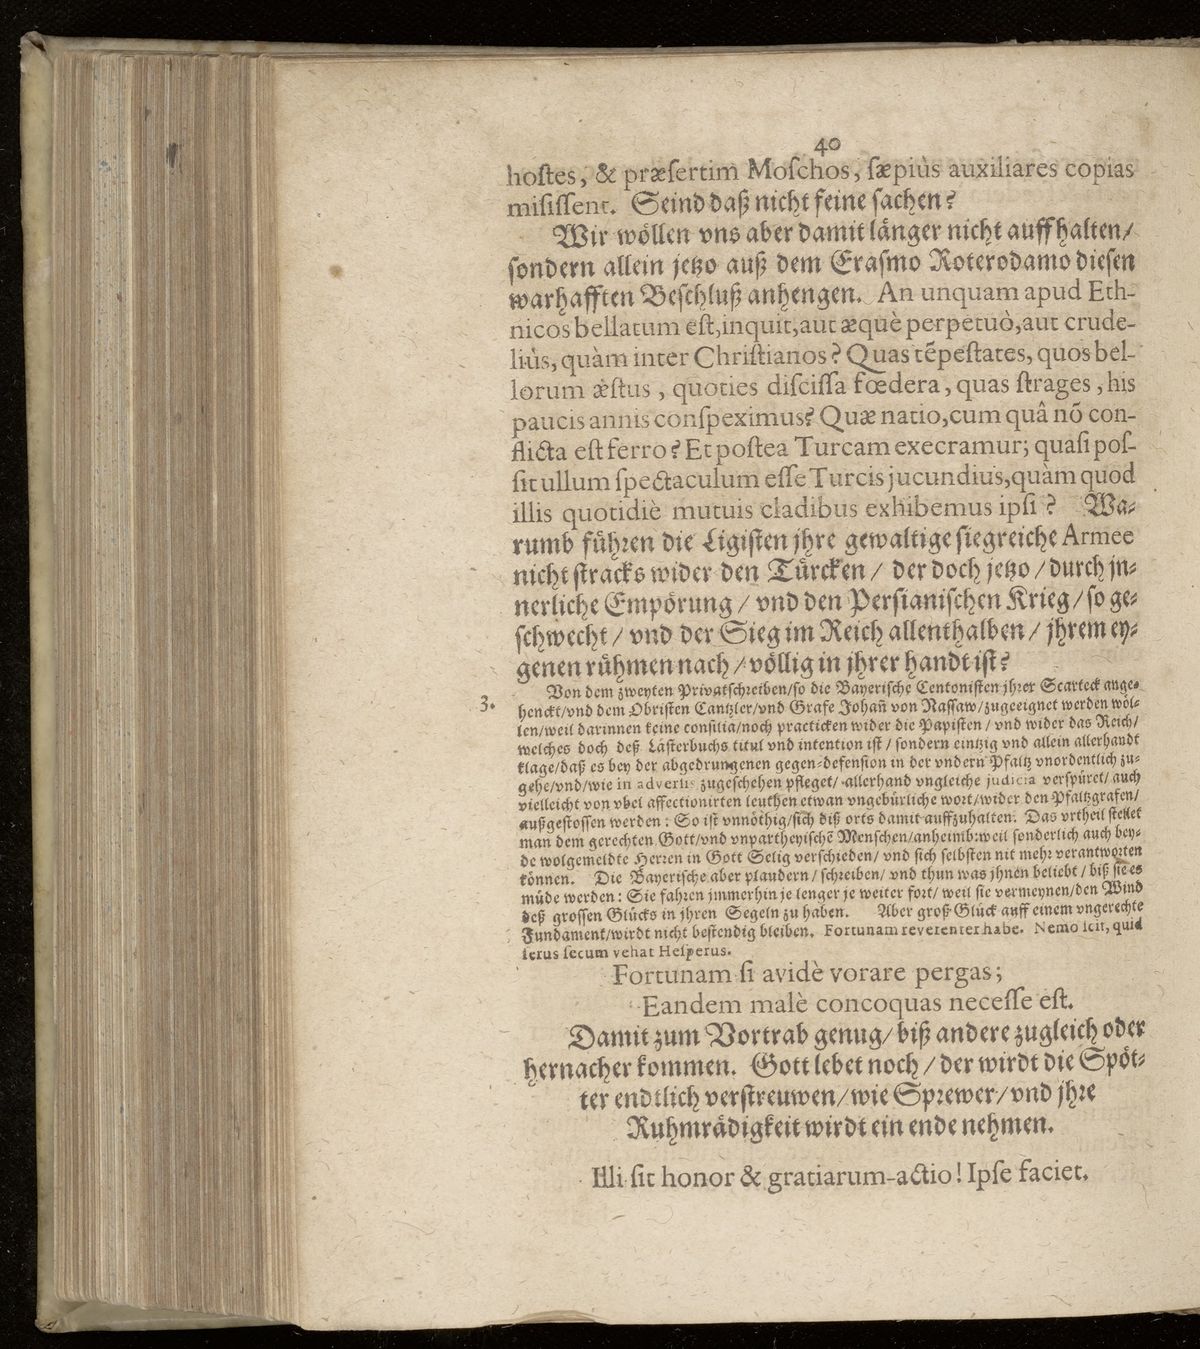 40
hoſtes, & præſertim Moſchos, ſæpiùs auxiliares copias
miſiſſent. Seind daß nicht feine ſachen?
Wir wöllen vns aber damit länger nicht auffhalten/
ſondern allein jetzo auß dem Eraſmo Roterodamo dieſen
warhafften Beſchluß anhengen. An unquam apud Eth-
nicos bellatum eſt, inquit, aut æquè perpetuò, aut crude-
liùs, quàm inter Chriſtianos? Quas tẽpeſtates, quos bel-
lorum æſtus, quoties diſciſſa fœdera, quas ſtrages, his
paucis annis conſpeximus? Quæ natio, cum quâ nõ con-
flicta eſt ferro? Et poſtea Turcam execramur; quaſi poſ-
ſit ullum ſpectaculum eſſe Turcis jucundius, quàm quod
illis quotidiè mutuis cladibus exhibemus ipſi? Wa-
rumb führen die Ligiſten jhre gewaltige ſiegreiche Armee
nicht ſtracks wider den Türcken/ der doch jetzo/ durch jn-
nerliche Empörung/ vnd den Perſianiſchen Krieg/ ſo ge-
ſchwecht/ vnd der Sieg im Reich allenthalben/ jhrem ey-
genen rühmen nach/ völlig in jhrer handt iſt?
3. Von dem zweyten Privatſchreiben/ ſo die Bayeriſche Centoniſten jhrer Scarteck ange-
henckt/ vnd dem Obriſten Cantzler/ vnd Grafe Johañ von Naſſaw/ zugeeignet werden wöl-
len/ weil darinnen keine conſilia/ noch practicken wider die Papiſten/ vnd wider das Reich/
welches doch deß Läſterbuchs titul vnd intention iſt/ ſondern eintzig vnd allein allerhandt
klage/ daß es bey der abgedrungenen gegen-defenſion in der vndern Pfaltz vnordentlich zu-
gehe/ vnd/ wie in adverſis zugeſchehen pfleget/ allerhand vngleiche judicia verſpüret/ auch
vielleicht von vbel affectionirten leuthen etwan vngebürliche wort/ wider den Pfaltzgrafen/
außgeſtoſſen werden: So iſt vnnöthig/ ſich diß orts damit auffzuhalten. Das vrtheil ſtellet
man dem gerechten Gott/ vnd vnpartheyiſchẽ Menſchen/ anheimb: weil ſonderlich auch bey-
de wolgemeldte Herren in Gott Selig verſchieden/ vnd ſich ſelbſten nit mehr verantworten
können. Die Bayeriſche aber plaudern/ ſchreiben/ vnd thun was jhnen beliebt/ biß ſie es
müde werden: Sie fahren jmmerhin je lenger je weiter fort/ weil ſie vermeynen/ den Wind
deß groſſen Glücks in jhren Segeln zu haben. Aber groß Glück auff einem vngerechte
Fundament/ wirdt nicht beſtendig bleiben. Fortunam reverenter habe. Nemo ſcit, quid
ſerus ſecum vehat Heſperus.
Fortunam ſi avidè vorare pergas;
Eandem malè concoquas neceſſe eſt.
Damit zum Vortrab genug/ biß andere zugleich oder
hernacher kommen. Gott lebet noch/ der wirdt die Spöt-
ter endtlich verſtreuwen/ wie Sprewer/ vnd jhre
Ruhmrädigkeit wirdt ein ende nehmen.
Illi ſit honor & gratiarum-actio! Ipſe faciet.